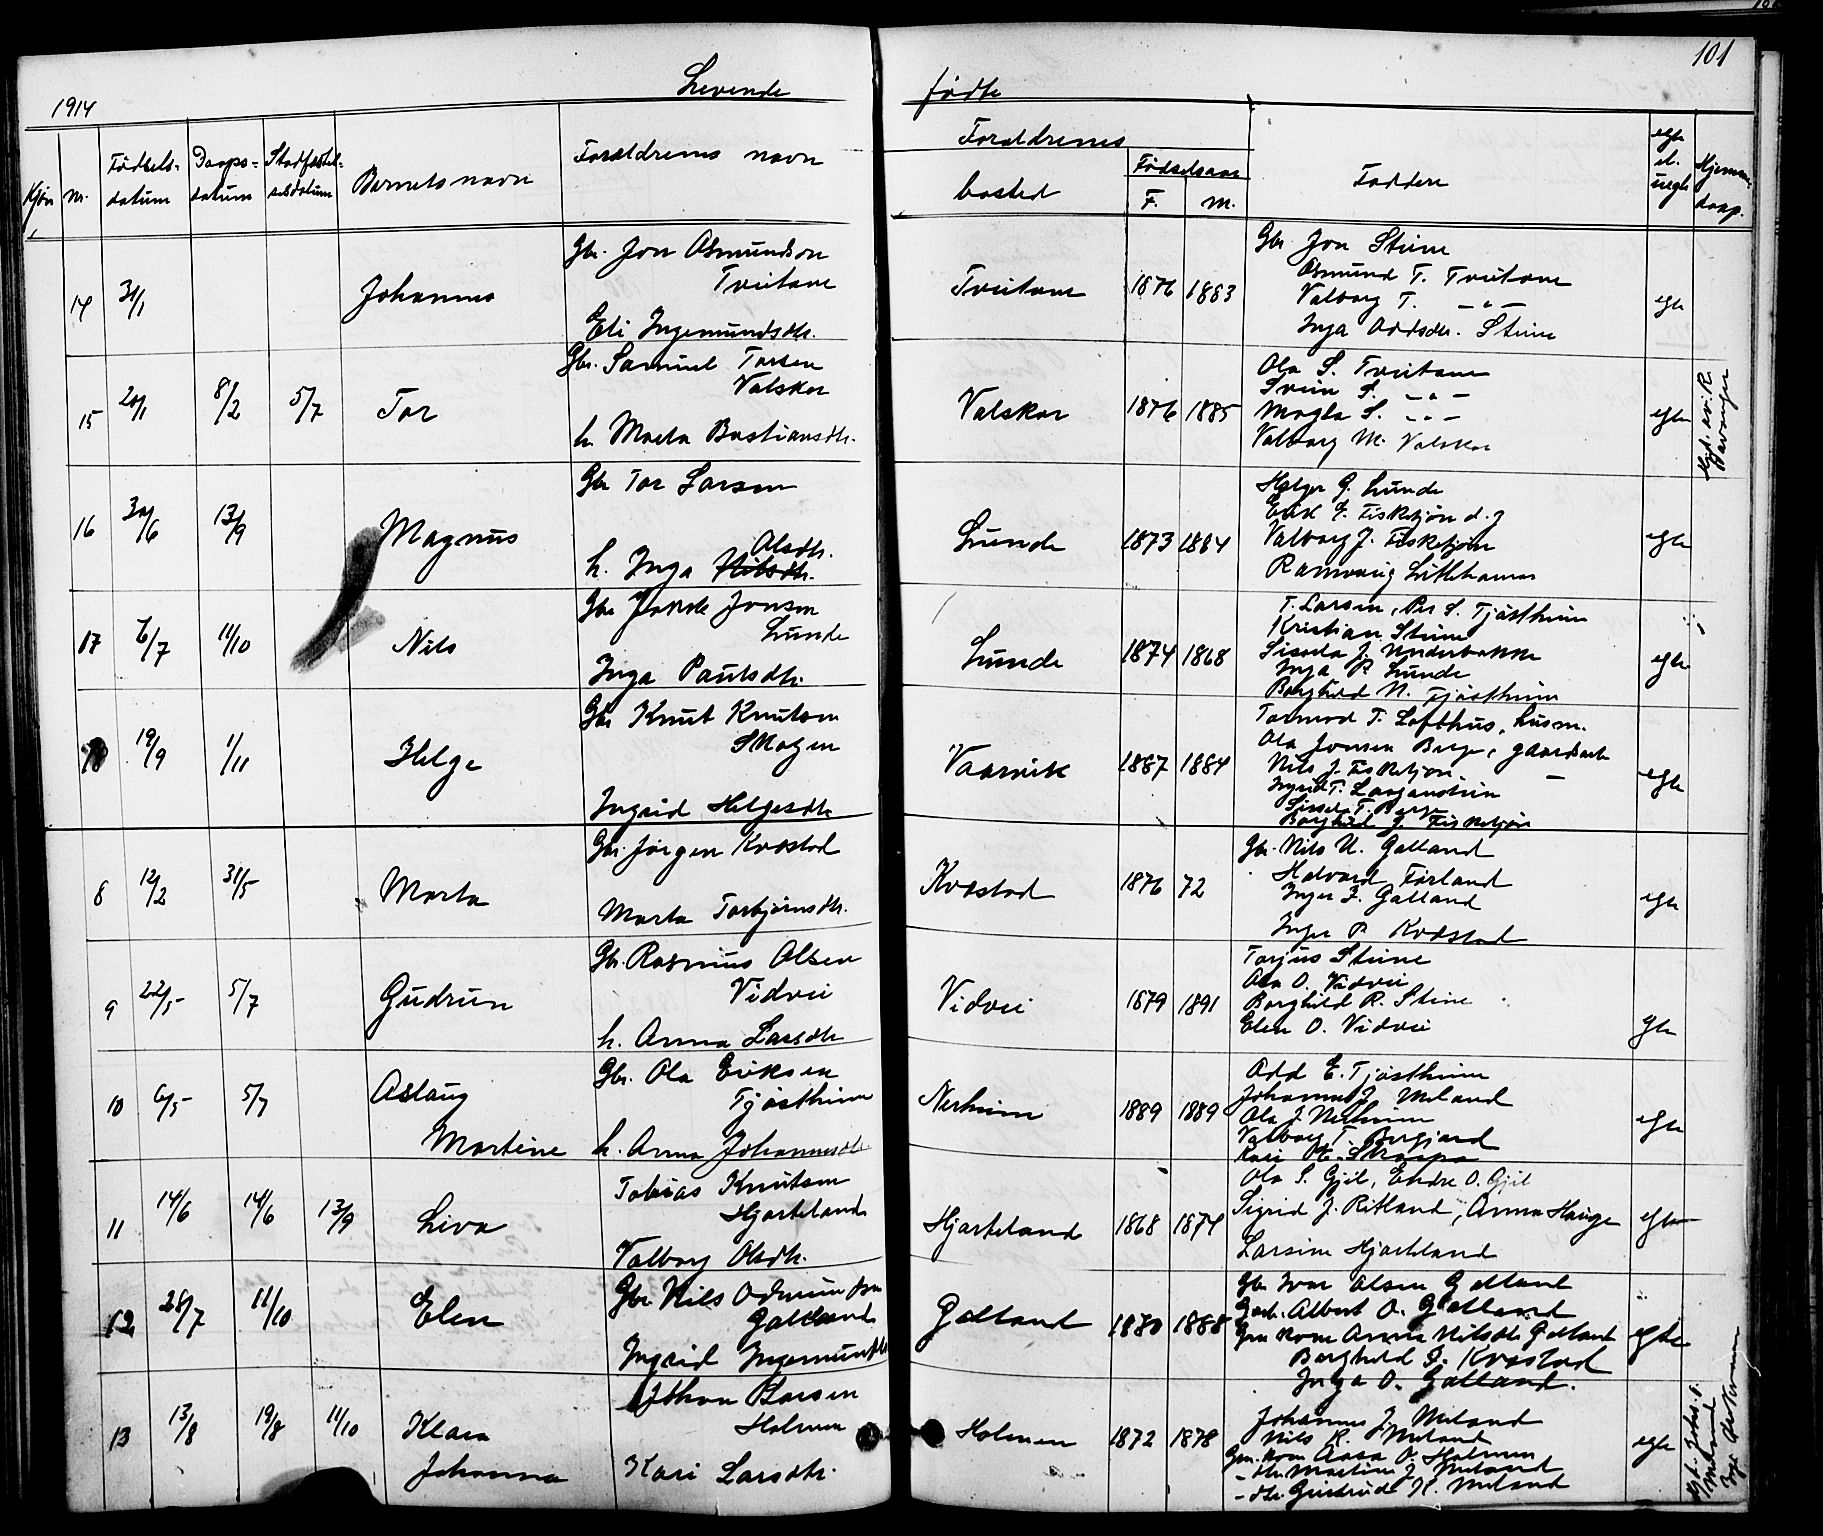 101
1914 Levende fødte
Kjøn Nr. Fødsels-datum Daaps-datum Stadfæstel-sesdatum Barnets navn Forældrenes navn Forældrenes bosted Fødselsaar F. M. Faddere egte el. uegte Hjemme-daap.
14 31/1 Johannes
Gbr. Jon Osmundson
Tveitane
Eli Ingemundsdtr.
Tveitane 1876 1883
Gbr. Jon Steine
Osmund T. Tveitane
Valborg T. — " —
Inga Oddsdtr. Steine
egte
15 20/1 8/2 5/7 Tor
Gbr. Samuel Torsen
Valskar
h. Marta Bastiansdtr.
Valskar 1876 1885
Ola S. Tveitane
Svein S. — " —
Magla S. — " —
Valborg M. Valskar
egte
16 30/6 13/9 Magnus
Gbr Tor Larsen
Olsdtr.
h. Inga Nilsdtr.
Lunde 1873 1884
Helge G. Lunde
Eirik G. Fisketjøn d. y
Valborg J. Fisketjøn
egte
17 6/7 11/10 Nils
Gbr Jakob Jonsen
Lunde
Inga Paulsdtr.
Lunde 1874 1868
T. Larsen, Per S. Tjøstheim
Kristian Steine
Sissela J. Underbakke
Inga P. Lunde
Borghild N. Tjøstheim
egte
18 19/9 1/11 Helge
Gbr Knut Knutsen
Skogen
Ingrid Helgesdtr
Vaarvik 1887 1884
Tormod T. Lofthus, husm.
Ola Jonsen Berge, gaardarb
Nils J. Fisketjøn —
Ingrid T. Laaganstein
Sissela T. Berge
Borghild J. Fisketjøn
egte
8 12/2 31/5 Marta
Gbr. Jørgen Kvæstad
Marta Torbjørnsdtr.
Kvæstad 1876 72
Gbr. Nils U. Gatland
Halvard Førland
Inger I. Gatland
Inger P. Kvæstad
egte
9 22/5 5/7 Gudrun
Gbr. Rasmus Olsen
Vidvei
h. Anna Larsdtr
Vidvei 1879 1891
Torjus Steine
Ola O. Vidvei
Borghild R. Steine
Elen O. Vidvei
egte
10 6/5 5/7 Aslaug
Martine
Gbr. Ola Eriksen
Tjøstheim
h. Anna Johannesdtr
Nerheim 1889 1889
Odd E. Tjøstheim
Johannes J. Meland
Ola J. Nerheim
Valborg T. Bergjord
egte
11 14/6 14/6 13/9 Liva
Tobias Knutsen
Hjorteland
Valborg Olsdtr.
Hjorteland 1868 1874
Ola S. Gjil, Endre O. Gjil
Sigrid J. Ritland, Anna Hauge
Larsine Hjorteland
egte
12 28/7 11/10 Elen
Gbr Nils Odmundsen
Gatland
Ingrid Ingemundsdtr
Gatland 1880 1888
Gbr Ivar Olsen Gatland
Gaardb. Albert O. Gatland
Gm. kone Anna Nilsdtr Gatland
Borghild J. Kvæstad
Inga O. Gatland.
egte
13 13/8 19/8 11/10 Klara
Johanna
Johan Larsen
Holmen
Kari Larsdtr.
Holmen 1872 1878
Johannes J. Meland
Nils K. Meland
Gm. kone Aasa O. Holmen
— dtr. Martine J. Meland
— dtr. Gjertrud K. Meland
egte